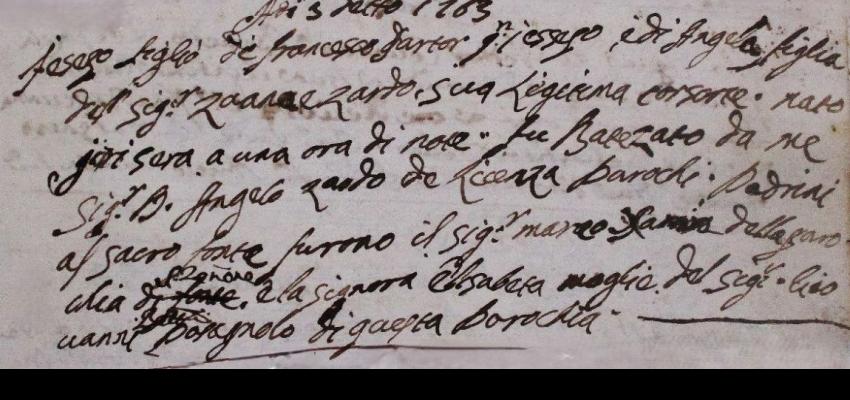 Adi 3 detto 1763
Iesepo figlio de francesco Sartor q.m iessepo, e di Angela figlia
del sig.r Zuanne Zardo, sua Legitima consorte. nato
jeri sera a una ora di note. fu Batezato da me
Sig.r D. Angelo Zardo de Licenza Parochi. Padrini
al sacro fonte furono il sig.r marco della paro
chia e la signora Elisabeta moglie del sig.r Gio
uanni di questa Parochia